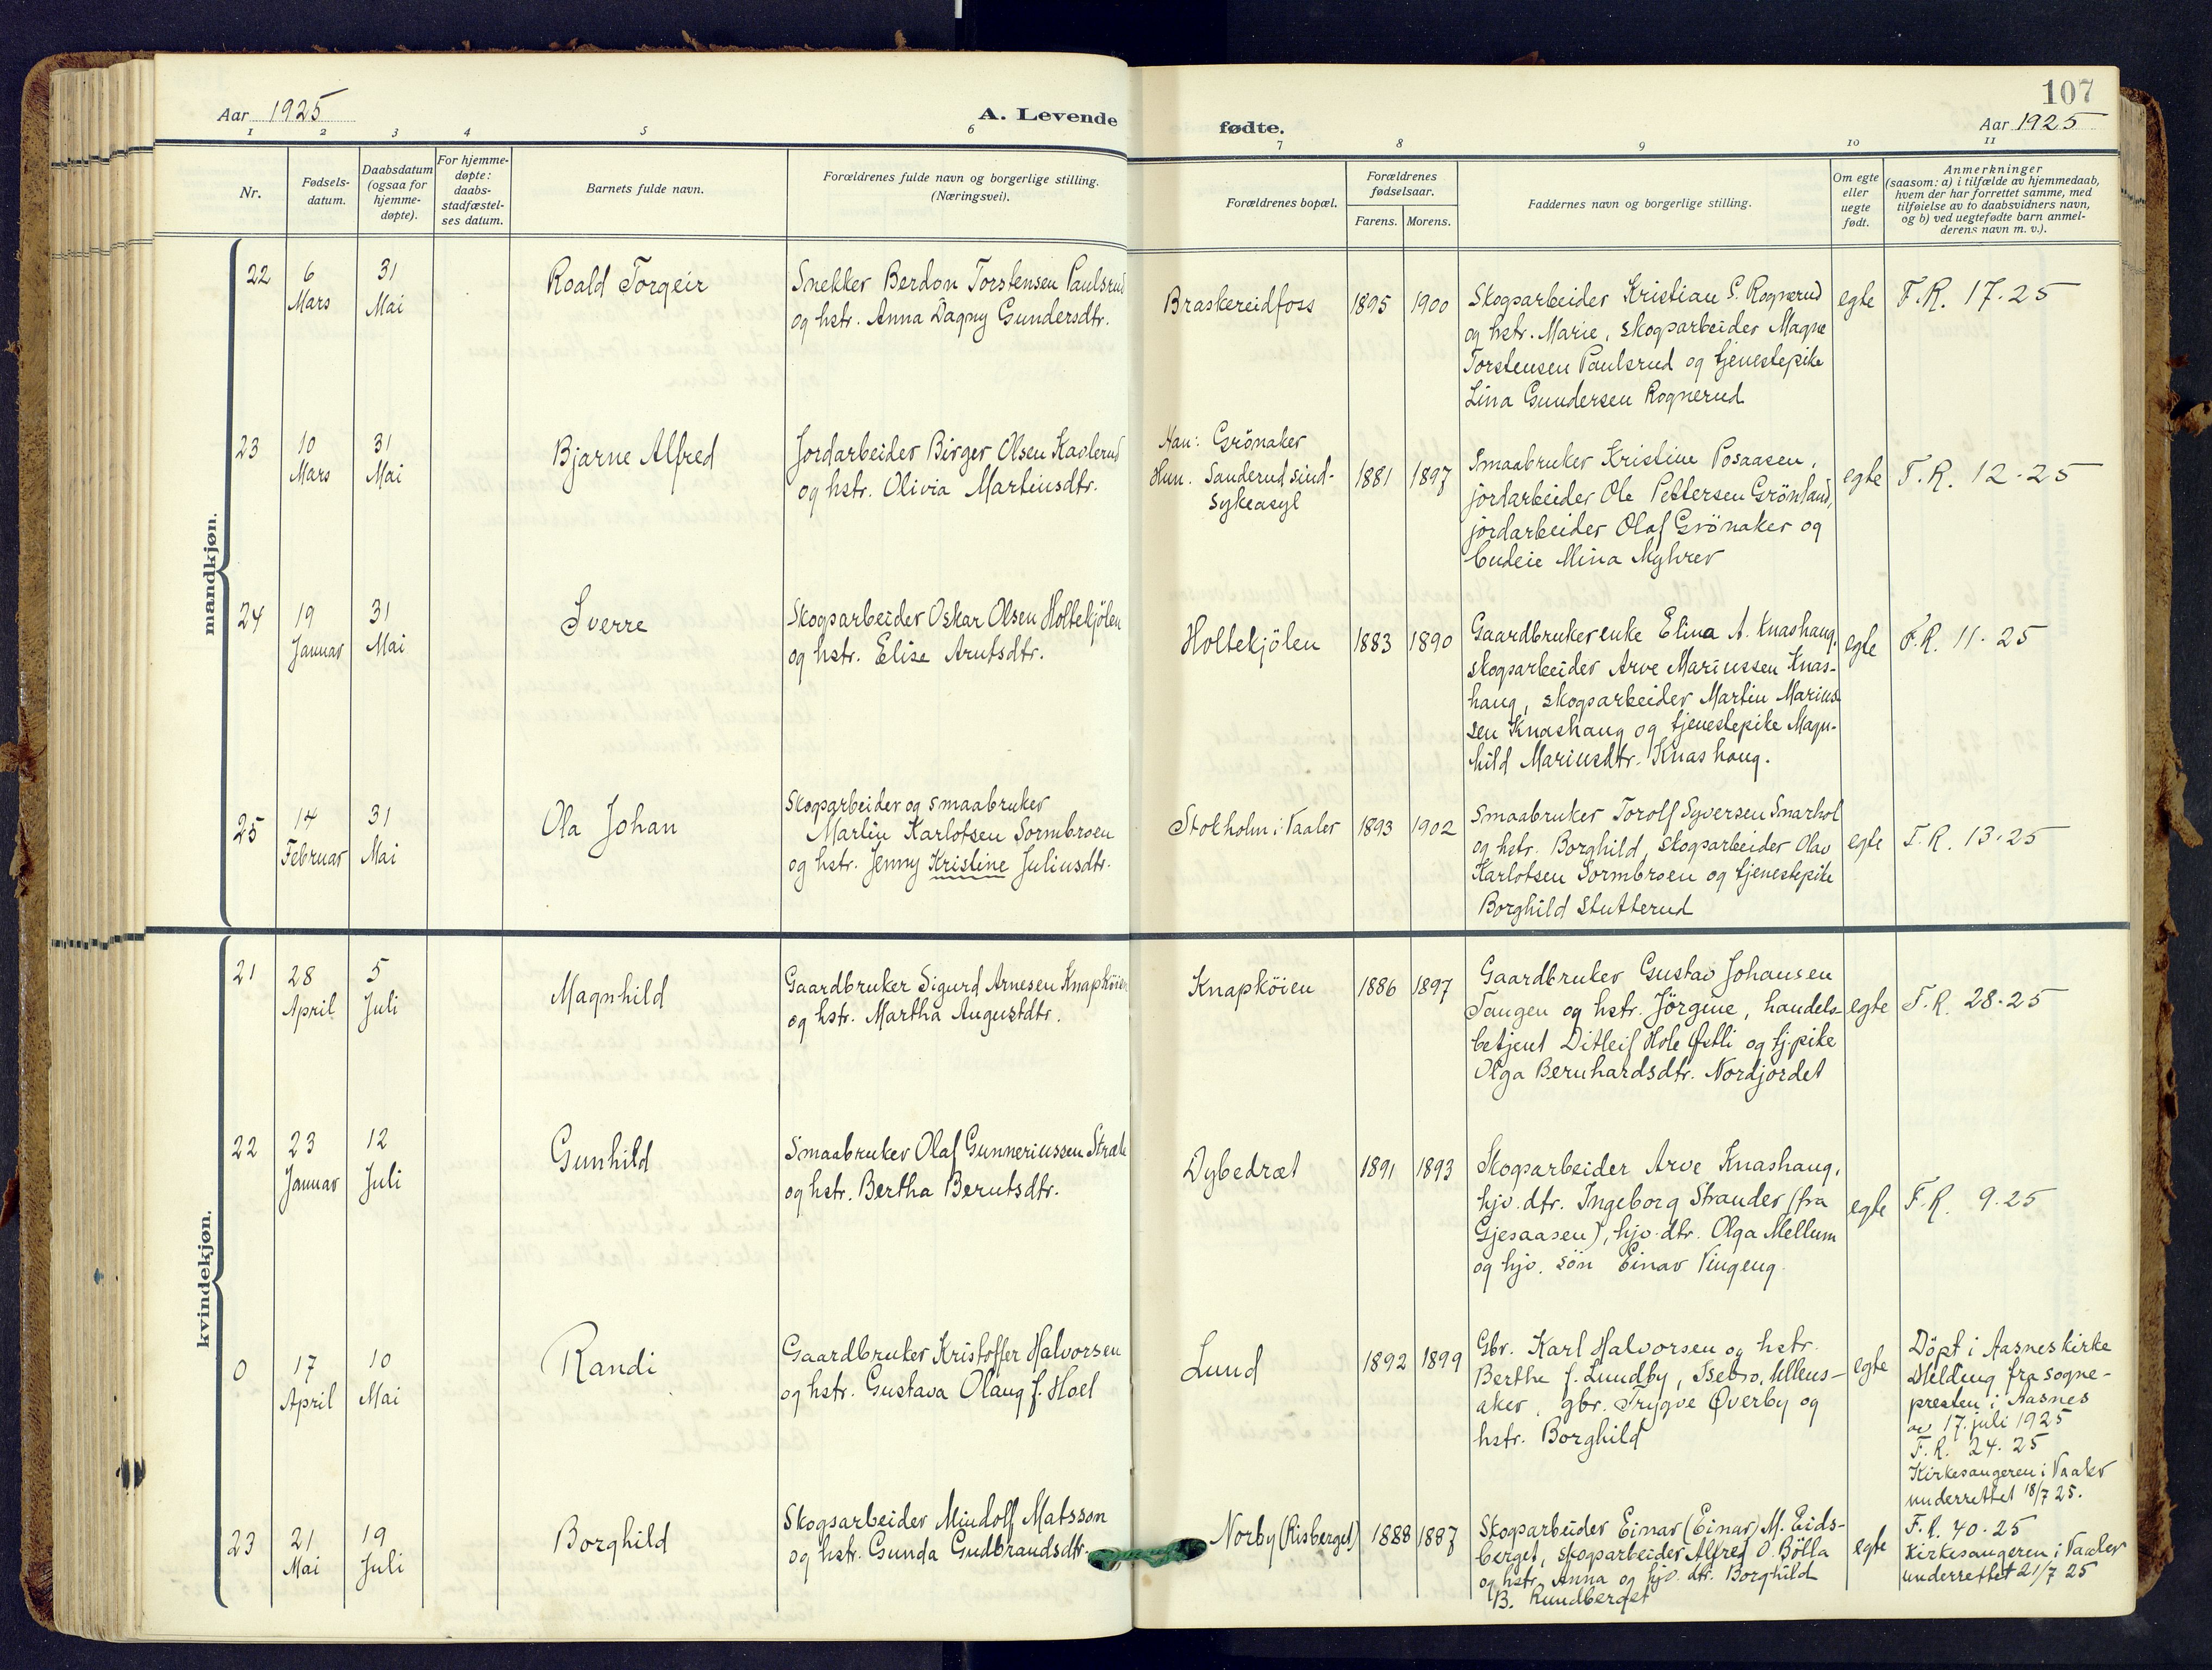 107
Aar 1925
A. Levende fødte.
Aar 1925
1 2 3 4 5 6 7 8 9 10 11
Nr.
Fødsels-
datum.
Daabsdatum
(ogsaa for
hjemme-
døpte).
For hjemme-
døpte:
daabs-
stadfæstel-
ses datum.
Barnets fulde navn.
Forældrenes fulde navn og borgerlige stilling.
(Næringsvei).
Forældrenes bopæl.
Forældrenes
fødselsaar.
Farens. Morens.
Faddernes navn og borgerlige stilling.
Om egte
eller
uegte
født.
Anmerkninger
(saasom: a) i tilfælde av hjemmedaab,
hvem der har forrettet samme, med
tilføielse av to daabsvidners navn,
og b) ved uegtefødte barn anmel-
derens navn m. v.).
mandkjøn.
22
6
Mars
31
Mai
Roald Torgeir
Snekker Berdon Torstensen Paulsrud
og hstr. Anna Dagny Gundersdtr.
Braskereidfoss
1895
1900
Skogsarbeider Kristian G. Rognerud
og hstr. Marie, skogsarbeider Magne
Torstensen Paulsrud og tjenestepike
Lina Gundersen Rognerud
egte
F.R. 17-25
23
10
Mars
31
Mai
Bjarne Alfred
Jordarbeider Birger Olsen Kavlerud
og hstr. Olivia Martinsdtr.
Han: Grönaker
Hun. Sanderud sind-
sykeasyl
1881
1897
Smaabruker Kristine Posaasen,
jordarbeider Ole Pettersen Grönland,
jordarbeider Olaf Grönaker og
budeie Mina Myhrer
egte
F.R. 12-25
24
19
Januar
31
Mai
Sverre
Skogsarbeider Oskar Olsen Holtekjölen
og hstr. Elise Arntsdtr.
Holtekjölen
1883
1890
Gaardbrukerenke Elina A. Knashaug,
skogsarbeider Arve Mariussen Knas-
haug, skogsarbeider Martin Marius-
sen Knashaug og tjenestepike Magn-
hild Mariusdtr. Knashaug.
egte
F.R. 11-25
25
14
Februar
31
Mai
Ola Johan
Skogsarbeider og smaabruker
Martin Karlotsen Sormbroen
og hstr. Jenny Kristine Juliusdtr.
Stokholm i Vaaler
1893
1902
Smaabruker Torolf Syversen Snarhol
og hstr. Borghild, skogsarbeider Olav
Karlotsen Sormbroen og tjenestepike
Borghild Stutterud
egte
F.R. 13-25
kvindekjøn.
21
28
April
5
Juli
Magnhild
Gaardbruker Sigurd Arnesen Knapköien
og hstr. Martha Augustdtr.
Knapköien
1886
1897
Gaardbruker Gustav Johansen
Tangen og hstr. Jörgine, handels-
betjent Ditleif Hole Østli og tj.pike
Olga Bernhardsdtr. Nordjordet
egte
F.R. 28-25
22
23
Januar
12
Juli
Gunhild
Smaabruker Olaf Gunneriussen
og hstr. Bertha Berntsdtr.
Dybedræt
1891
1893
Skogsarbeider Arve Knashaug,
hjv. dtr. Ingeborg Strander (fra
Gjesaasen), hjv. dtr. Olga Mellum
og hjv. sön Einar Vingeng
egte
F.R. 9-25
0
17
April
10
Mai
Randi
Gaardbruker Kristoffer Halvorsen
og hstr. Gustava Olaug f. Hoel
Lund
1892
1899
Gbr. Karl Halvorsen og hstr.
Berthe f. Lundby, Ullens-
aker, gbr. Trygve Øverby og
hstr. Borghild
egte
Döpt i Aasnes kirke
Melding fra sogne-
presten i Aasnes
av 17. juli 1925
F.R. 24-25
Kirkesangeren i Vaaler
underrettet 18/7 25.
23
21
Mai
19
Juli
Borghild
Skogsarbeider Mindolf Matsson
og hstr. Gunda Gudbrandsdtr.
Norby (Risberget)
1888
1887
Skogsarbeider Einar (Einar) M. Eids-
berget, skogsarbeider Alfred O. Bölla
og hstr. Anna og hjv. dtr. Borghild
B. Rundberget
egte
F.R. 40-25
Kirkesangeren i Vaaler
underrettet 21/7 25